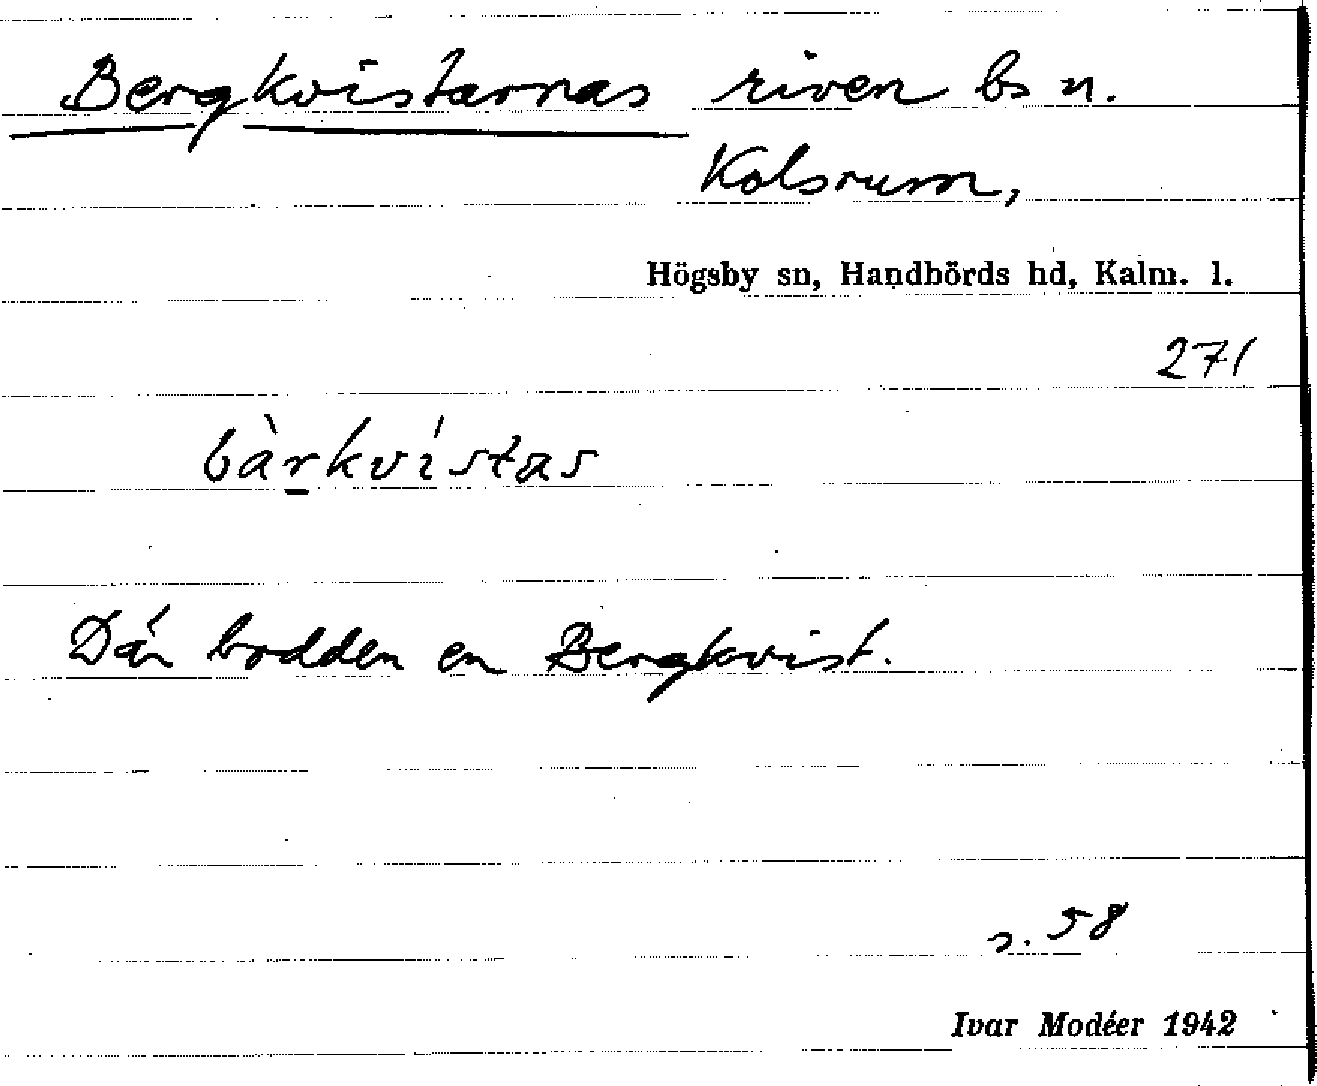 Bergkvistarnas riven bs n.
Kolsrum,
Högsby sn, Handbörds hd, Kalm. l.
271
bàrkvístas
Där bodden en Bergkvist.
s. 58
Ivar Modéer 1942